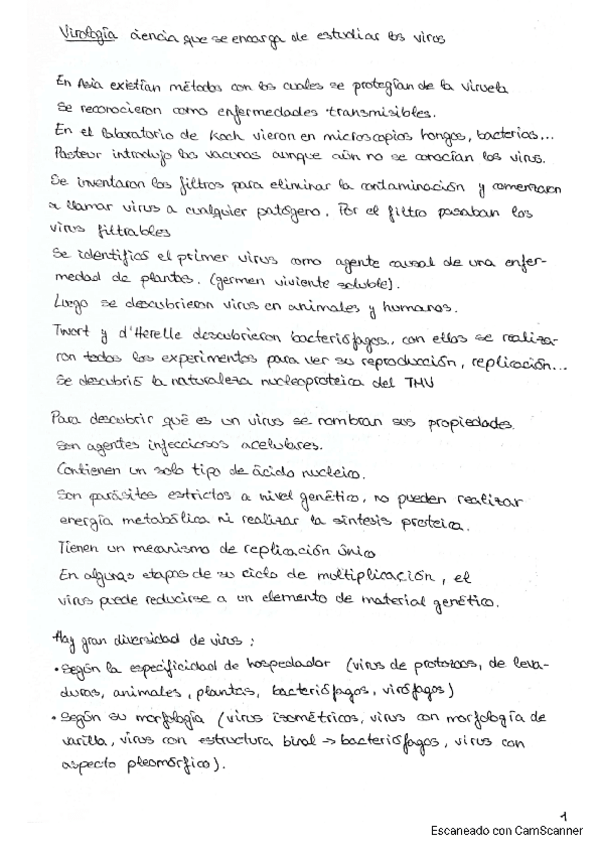 Virología ciencia que se encarga de estudiar los virus
En Asia existían métodos con los cuales se protegían de la viruela
Se reconocieron como enfermedades transmisibles.
En el laboratorio de Koch vieron en microscopios hongos, bacterias...
Pasteur introdujo las vacunas aunque aún no se conocían los virus.
Se inventaron los filtros para eliminar la contaminación y comenzaron
a llamar virus a cualquier patógeno. Por el filtro pasaban los
virus filtrables
Se identificó el primer virus como agente causal de una enfer-
medad de plantas. (germen viviente soluble).
Luego se descubrieron virus en animales y humanos.
Twort y d'Herelle descubrieron bacteriófagos., con ellos se realiza-
ron todos los experimentos para ver su reproducción, replicación...
Se descubrió la naturaleza nucleoproteica del TMV
Para descubrir qué es un virus se nombran sus propiedades.
Son agentes infecciosos acelulares.
Contienen un solo tipo de ácido nucleico.
Son parásitos estrictos a nivel genético, no pueden realizar
energía metabólica ni realizar la síntesis proteica.
Tienen un mecanismo de replicación único
En algunas etapas de su ciclo de multiplicación, el
virus puede reducirse a un elemento de material genético.
Hay gran diversidad de virus:
• Según la especificidad de hospedador (virus de protozoos, de leva-
duras, animales, plantas, bacteriófagos, virófagos)
• Según su morfología (virus isométricos, virus con morfología de
varilla, virus con estructura binal → bacteriófagos, virus con
aspecto pleomórfico).
1
Escaneado con CamScanner